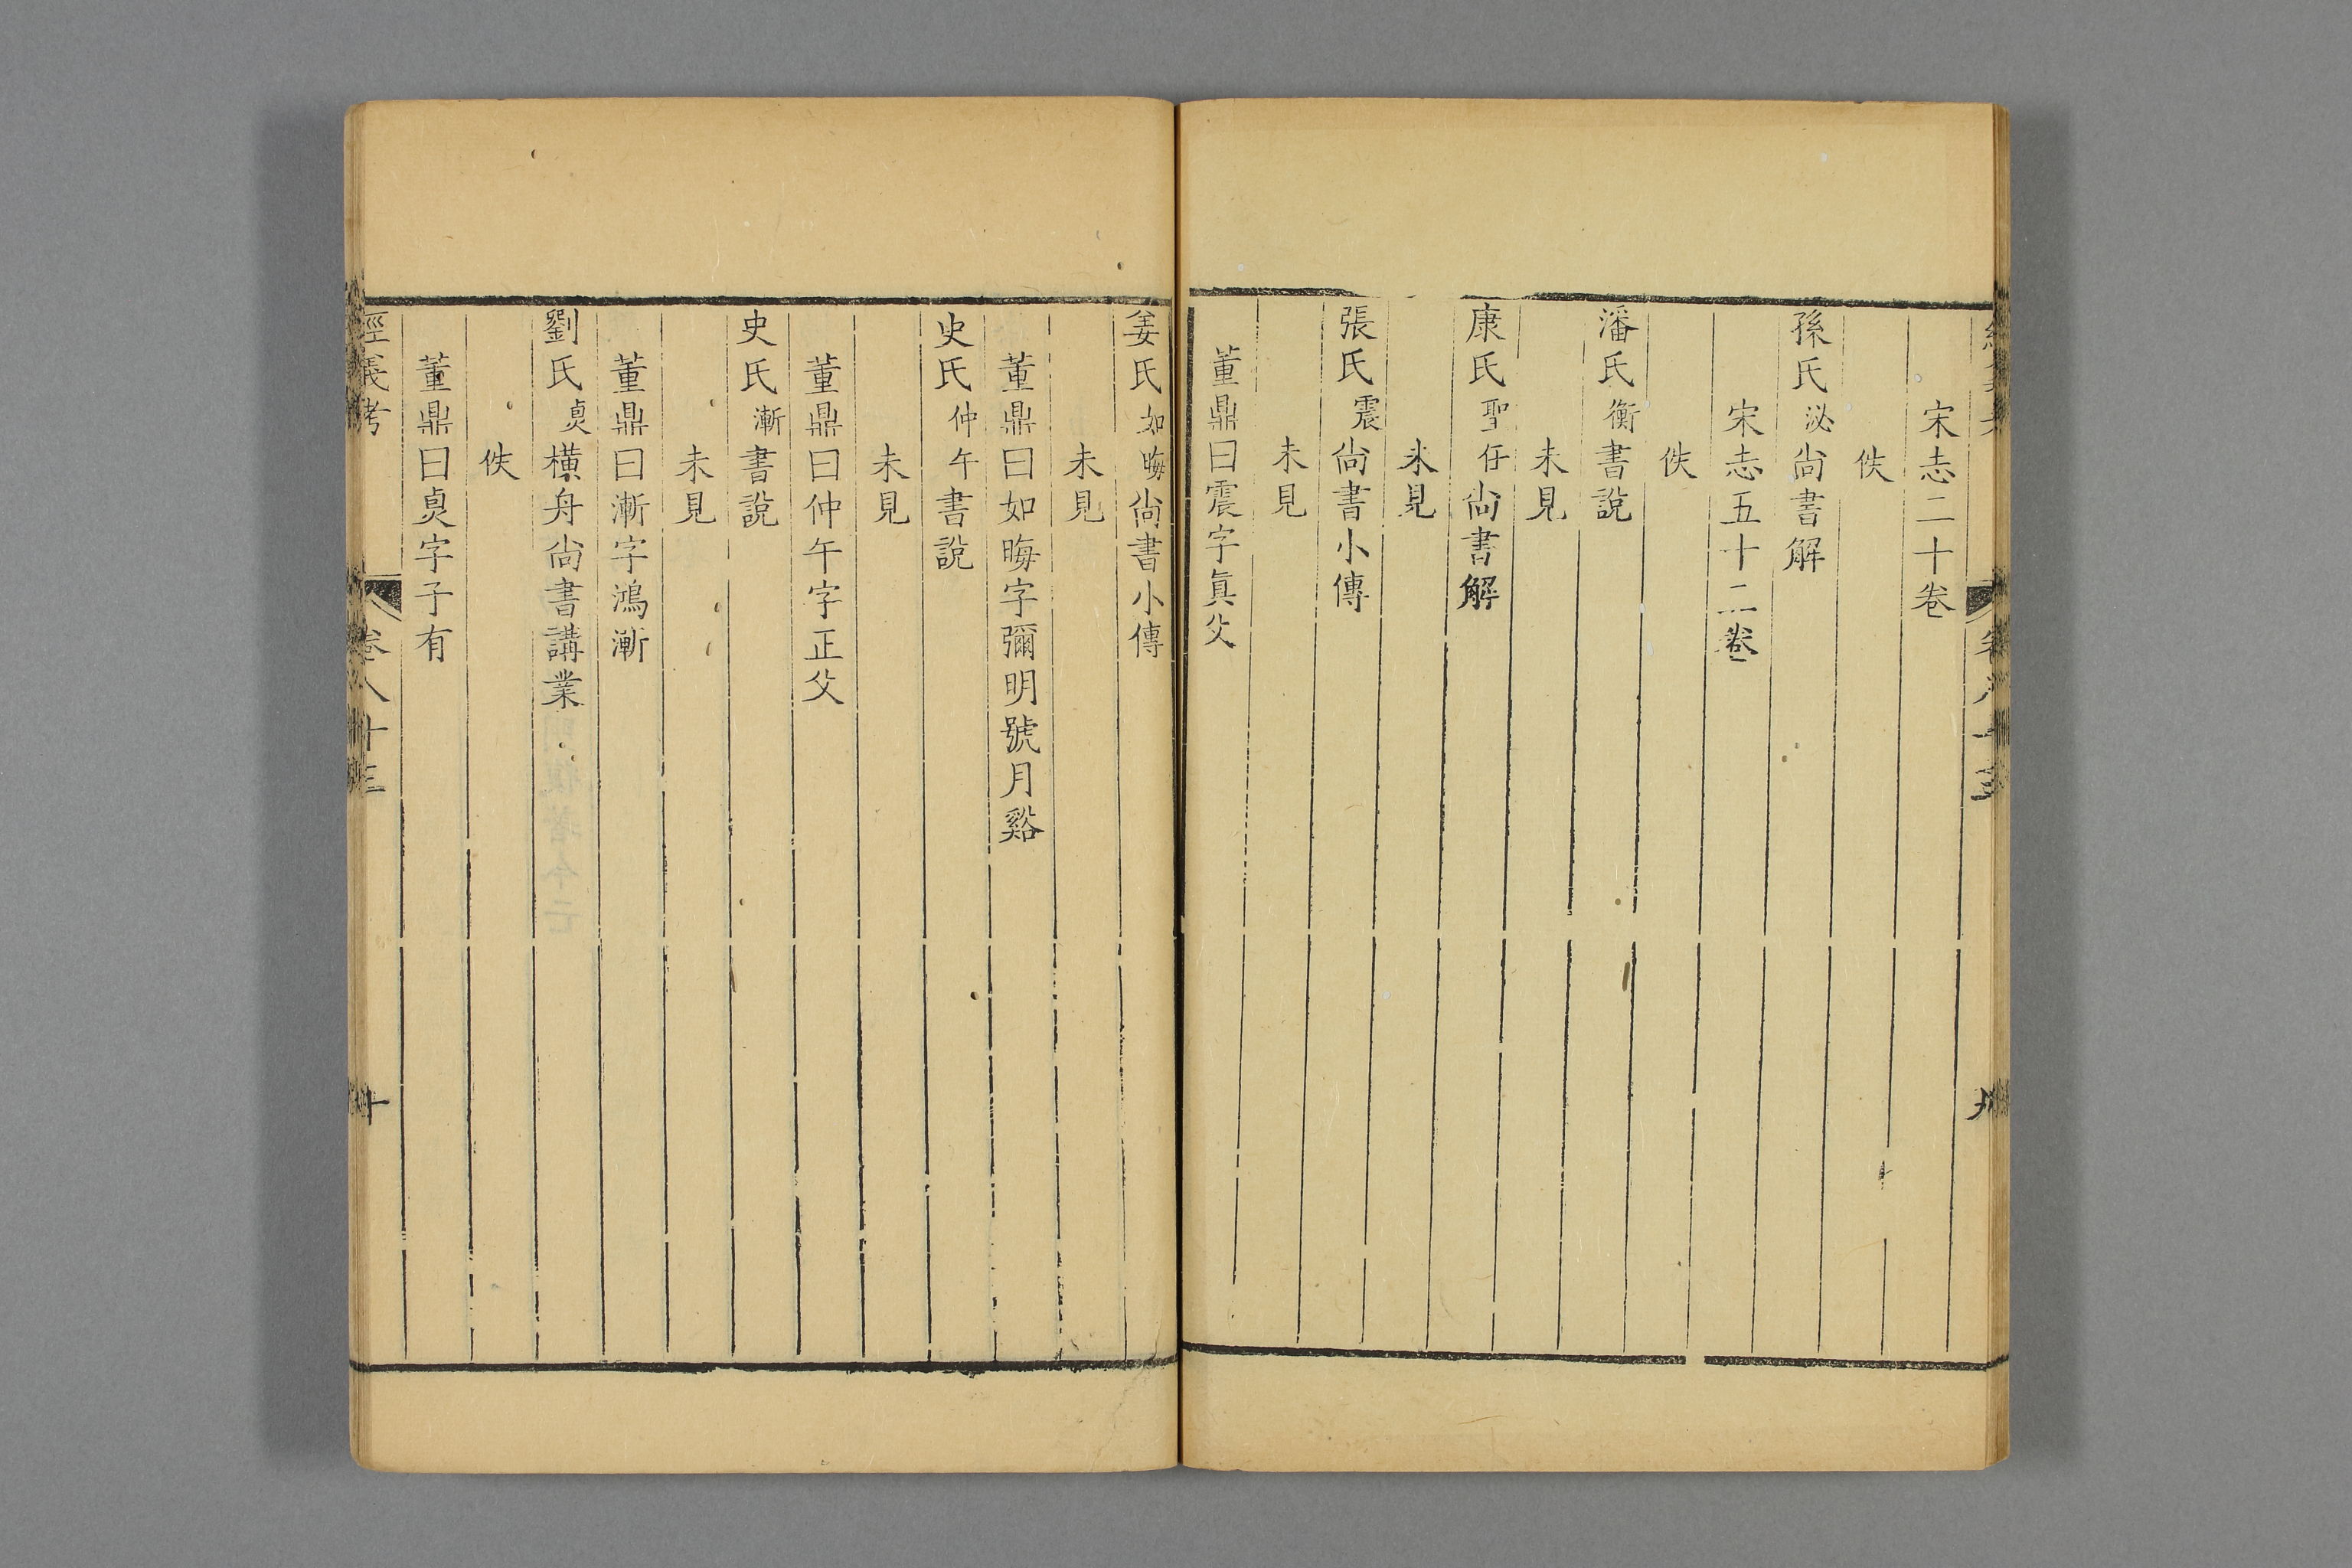 宋志二十卷
佚
孫氏泌尚書解
宋志五十二卷
佚
潘氏衡書說
未見
康氏聖任尚書解
未見
張氏震尚書小傳
未見
董鼎曰震字眞父
姜氏如晦尚書小傳
未見
董鼎曰如晦字彌明號月谿
史氏仲午書說
未見
董鼎曰仲午字正父
史氏漸書說
未見
董鼎曰漸字鴻漸
劉氏㒹橫舟尚書講業
佚
董鼎曰㒹字子有
經義考 卷八十三 十